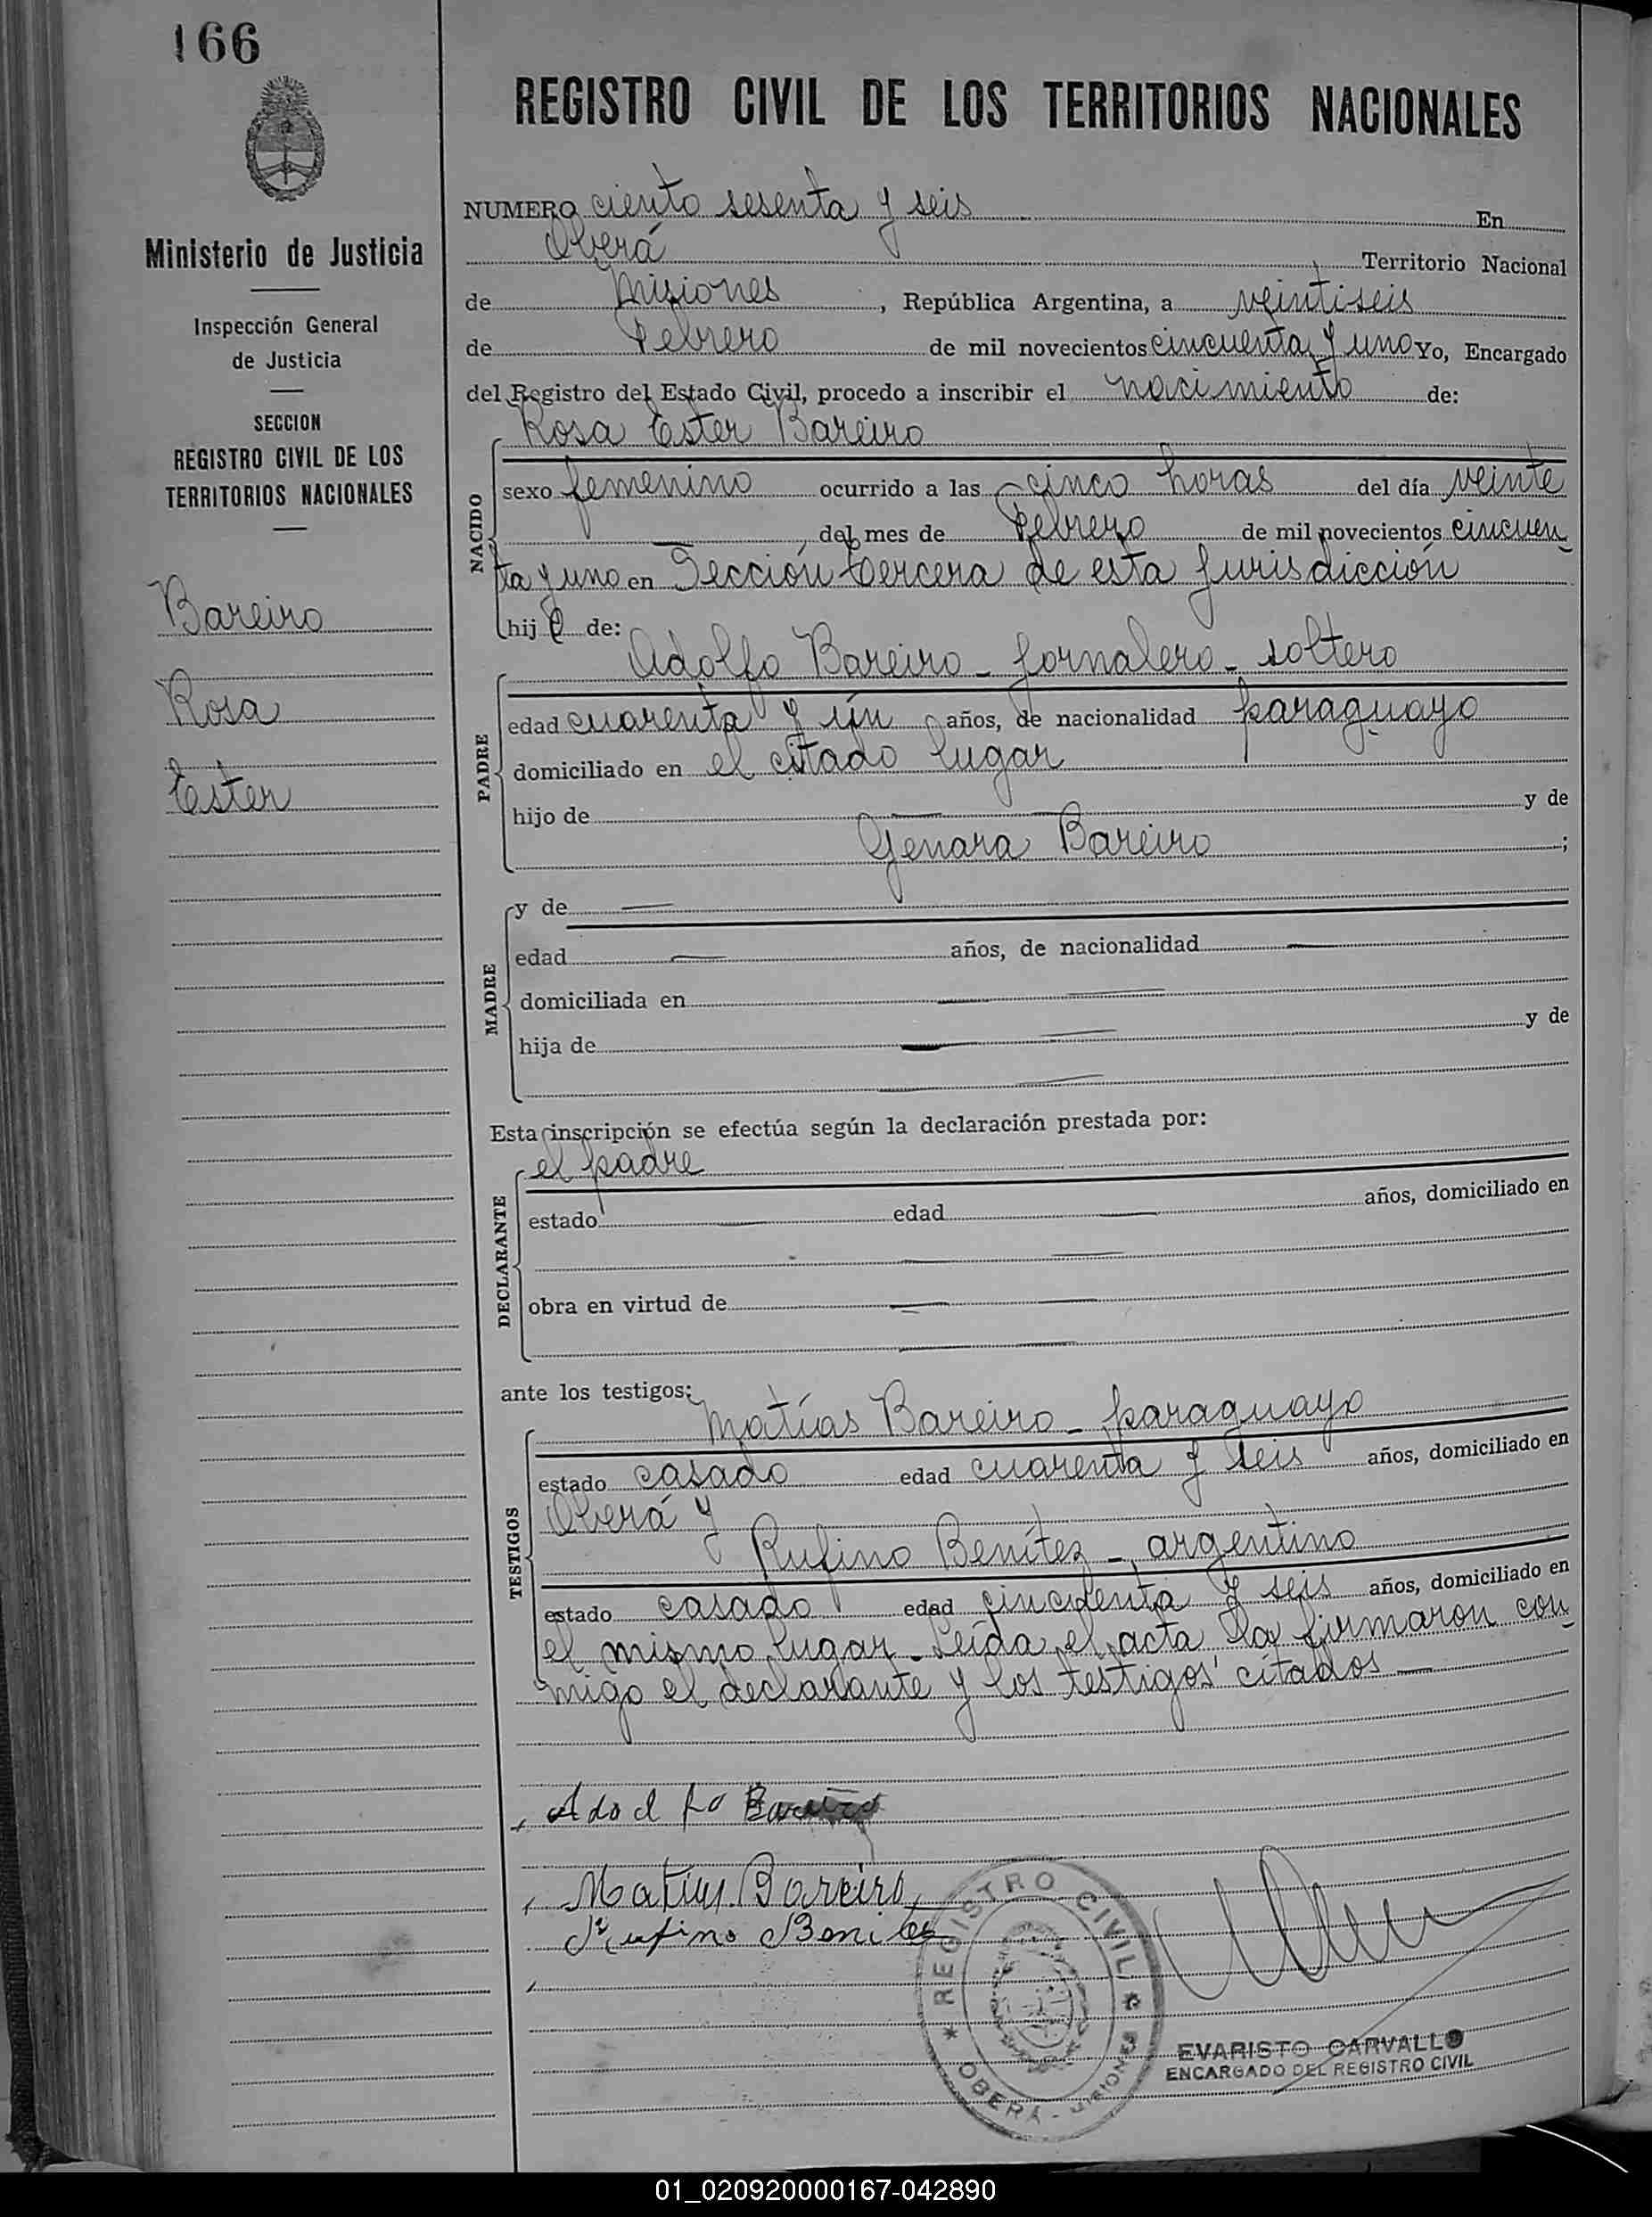 166
REGISTRO CIVIL DE LOS TERRITORIOS NACIONALES
Ministerio de Justicia
Inspección General
de Justicia
SECCION
REGISTRO CIVIL DE LOS
TERRITORIOS NACIONALES
Bareiro
Rosa
Ester
NUMERO ciento sesenta y seis En
Oberá Territorio Nacional
de Misiones, República Argentina, a veintiseis
de Febrero de mil novecientos cincuenta y uno Yo, Encargado
del Registro del Estado Civil, procedo a inscribir el nacimiento de:
NACIDO
Rosa Ester Bareiro
sexo femenino ocurrido a las cinco horas del día veinte
del mes de Febrero de mil novecientos cincuen
ta y uno en Sección tercera de esta jurisdicción
hij de:
PADRE
Adolfo Bareiro - jornalero - soltero
edad cuarenta y un años, de nacionalidad paraguayo
domiciliado en el citado lugar
hijo de y de
Genara Bareiro ;
MADRE
y de
edad años, de nacionalidad
domiciliada en
hija de y de
Esta inscripción se efectúa según la declaración prestada por:
DECLARANTE
el padre
estado edad años, domiciliado en
obra en virtud de
ante los testigos:
TESTIGOS
Matías Bareiro - paraguayo
estado casado edad cuarenta y seis años, domiciliado en
Oberá y
Rufino Benítez - argentino
estado casado edad cincuenta y seis años, domiciliado en
el mismo lugar - Leída el acta la firmaron con
migo el declarante y los testigos citados
Adodlfo Bareiro
Matias Bareiro
Rufino Benites
REGISTRO CIVIL
OBERÁ - MISIONES
EVARISTO CARVALLO
ENCARGADO DEL REGISTRO CIVIL
01_020920000167-042890